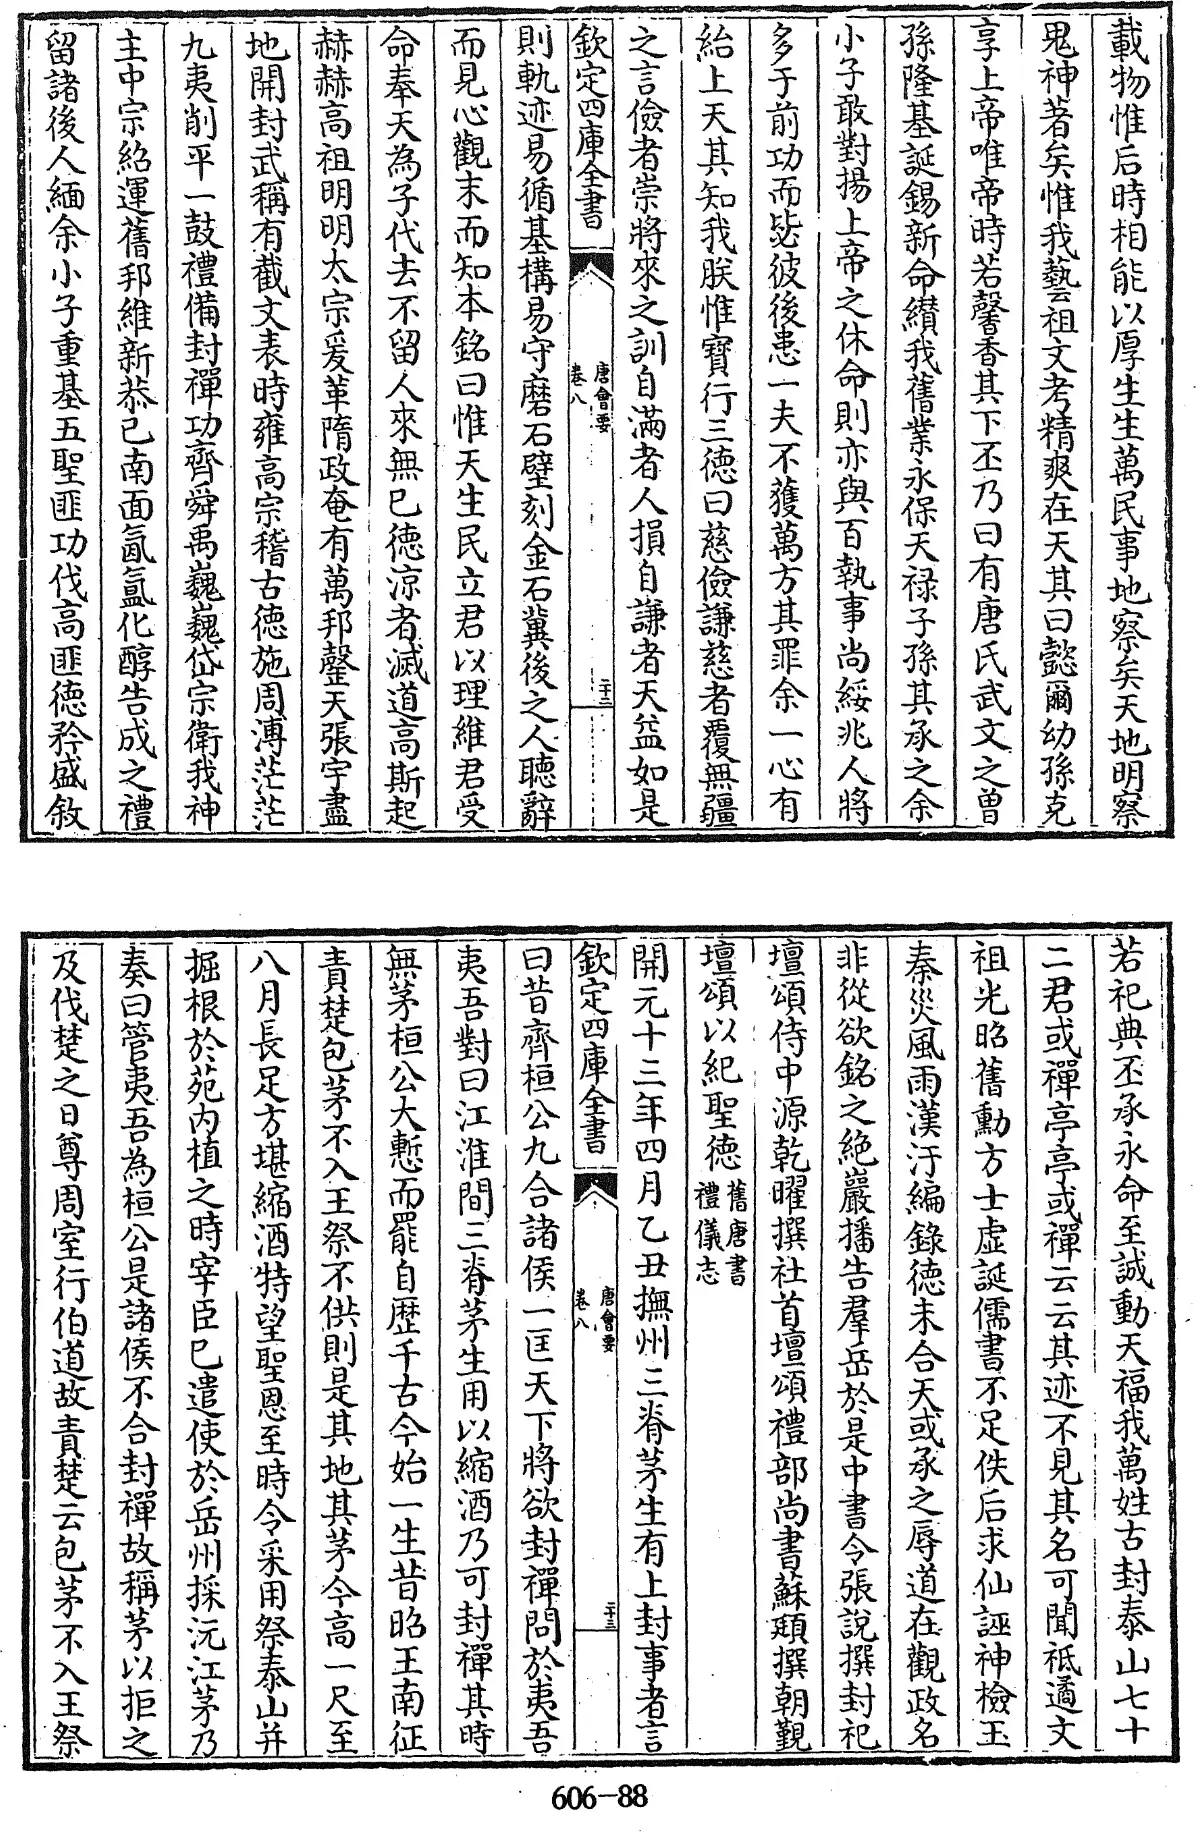 載物惟后時相能以厚生生萬民事地察矣天地明察
鬼神著矣惟我藝祖文考精爽在天其曰懿爾幼孫克
享上帝唯帝時若馨香其下丕乃曰有唐氏武文之曾
孫隆基誕錫新命纘我舊業永保天禄子孫其承之余
小子敢對揚上帝之休命則亦與百執事尚綏兆人將
多于前功而毖彼後患一夫不獲萬方其罪余一心有
終上天其知我朕惟寶行三德曰慈儉謙慈者覆無疆
之言儉者崇將來之訓自滿者人損自謙者天益如是
欽定四庫全書
唐會要
卷八
二十二
則軌迹易循基構易守磨石壁刻金石冀後之人聽辭
而見心觀末而知本銘曰惟天生民立君以理維君受
命奉天為子代去不留人來無已德凉者滅道高斯起
赫赫高祖明明太宗爰革隋政奄有萬邦罄天張宇盡
地開封武稱有截文表時雍高宗稽古德施周溥茫茫
九夷削平一鼓禮備封禪功齊舜禹巍巍岱宗衛我神
主中宗紹運舊邦維新恭已南面氤氲化醇告成之禮
留諸後人緬余小子重基五聖匪功伐高匪德矜盛敘
若祀典丕承永命至誠動天福我萬姓古封泰山七十
二君或禪亭亭或禪云云其迹不見其名可聞祗遹文
祖光昭舊勳方士虛誕儒書不足佚后求仙誣神檢玉
秦災風雨漢汙編錄德未合天或承之辱道在觀政名
非從欲銘之絶巖播告羣岳於是中書令張說撰封祀
壇頌侍中源乾曜撰社首壇頌禮部尚書蘇頲撰朝覲
壇頌以紀聖德舊唐書禮儀志
開元十三年四月乙丑撫州三脊茅生有上封事者言
欽定四庫全書
唐會要
卷八
二十三
曰昔齊桓公九合諸侯一匡天下將欲封禪問於夷吾
夷吾對曰江淮間三脊茅生用以縮酒乃可封禪其時
無茅桓公大慙而罷自歴千古今始一生昔昭王南征
責楚包茅不入王祭不供則是其地其茅今高一尺至
八月長足方堪縮酒特望聖恩至時令采用祭泰山并
掘根於苑内植之時宰臣已遣使於岳州採沅江茅乃
奏曰管夷吾為桓公是諸侯不合封禪故稱茅以拒之
及伐楚之日尊周室行伯道故責楚云包茅不入王祭
606-88